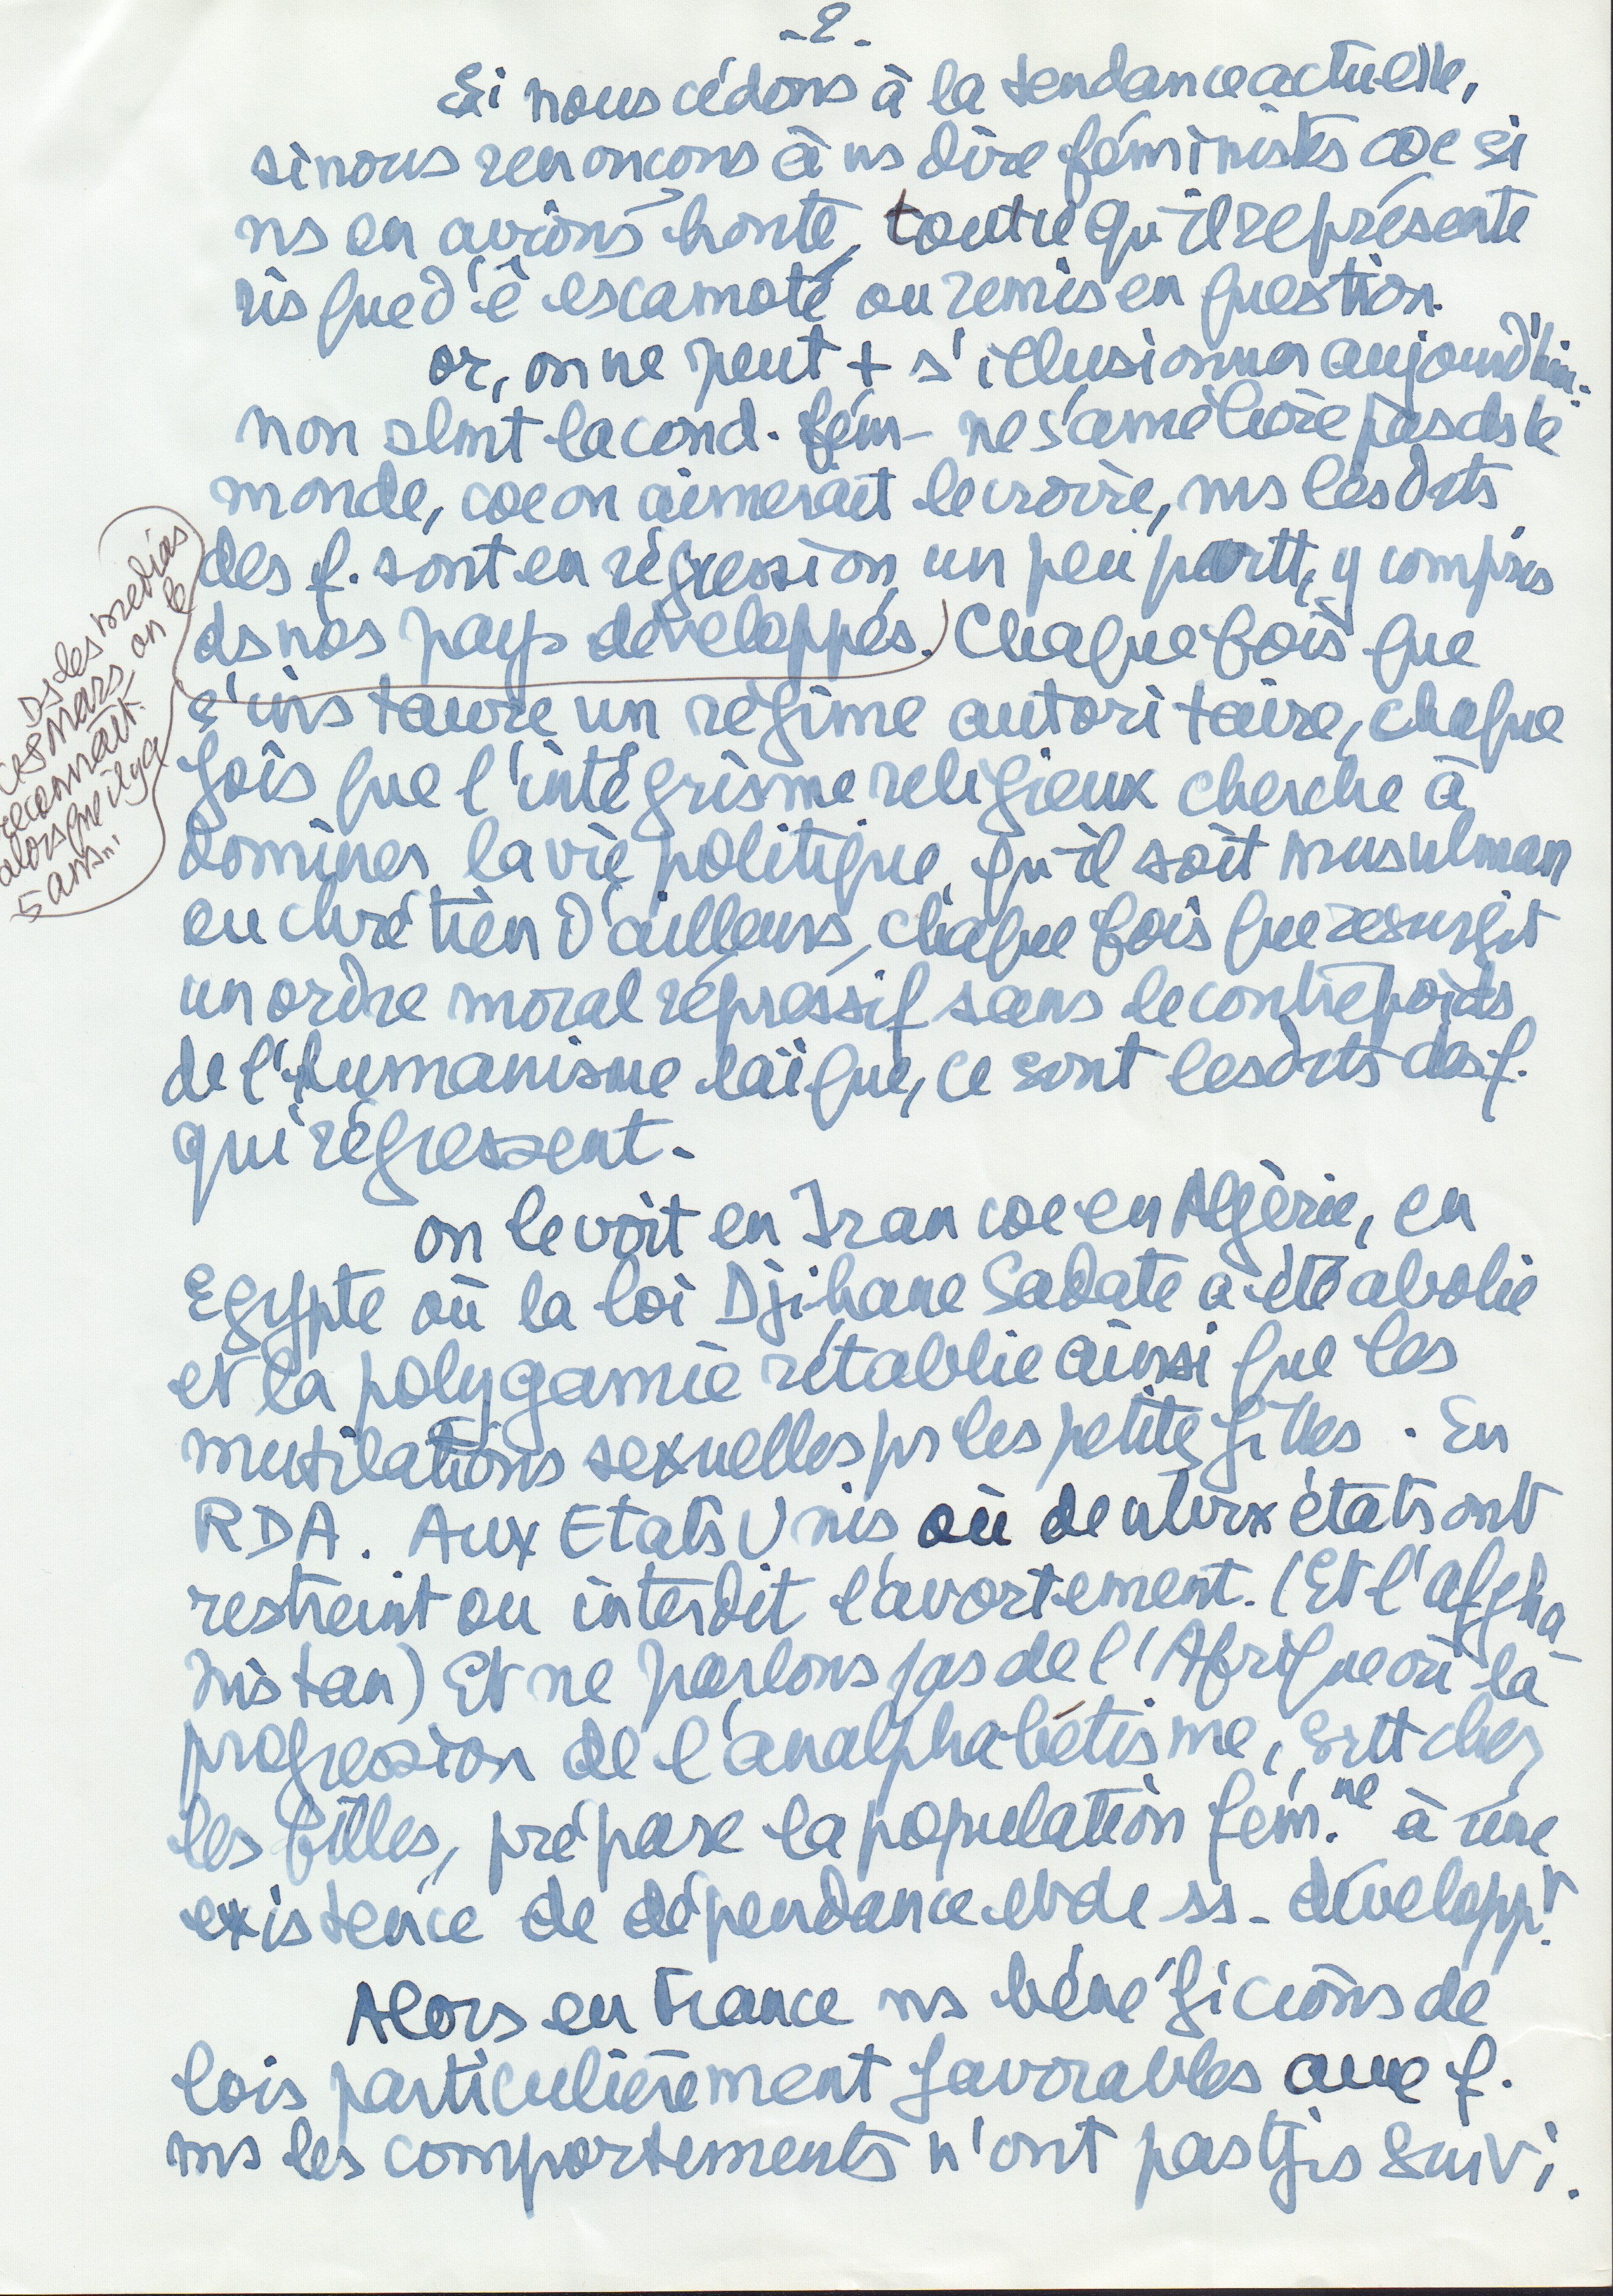 -2-
Si nous cédons à la tendance actuelle,
si nous renonçons à ns dire féministes coe si
ns en avions honte, tout ce qu'il représente
risque d'ê escamoté ou remis en question.
or, on ne peut + s'illusionner aujourd'hui:
non slmt la cond. fém- ne s'améliore pas ds le
monde, coe on aimerait le croire, ms les drts
des f. sont en régression un peu partt, y compris
ds nos pays développés. Chaque fois que
s'instaure un régime autoritaire, chaque
fois que l'intégrisme religieux cherche à
dominer la vie politique, qu'il soit musulman
ou chrétien d'ailleurs, chaque fois que resurgit
un ordre moral répressif sans le contrepoids
de l'humanisme laïque, ce sont les drts des f.
qui régressent.
on le voit en Iran coe en Algérie, en
Egypte où la loi Djihane Sadate a été abolie
et la polygamie rétablie ainsi que les
mutilations sexuelles pr les petites filles. En
RDA. Aux Etats Unis où de nbrx états ont
restreint ou interdit l'avortement. (Et l'afgha-
nistan) Et ne parlons pas de l'Afrique où la
progression de l'analphabétisme, srtt chez
les filles, prépare la population fém.ne à une
existence de dépendance et de ss-développt.
Alors en France ns bénéficions de
lois particulièrement favorables aux f.
ms les comportements n'ont pas tjrs suivi.
Ds les medias
ces mars, on le
reconnait.
alors que il y a
5 ans...